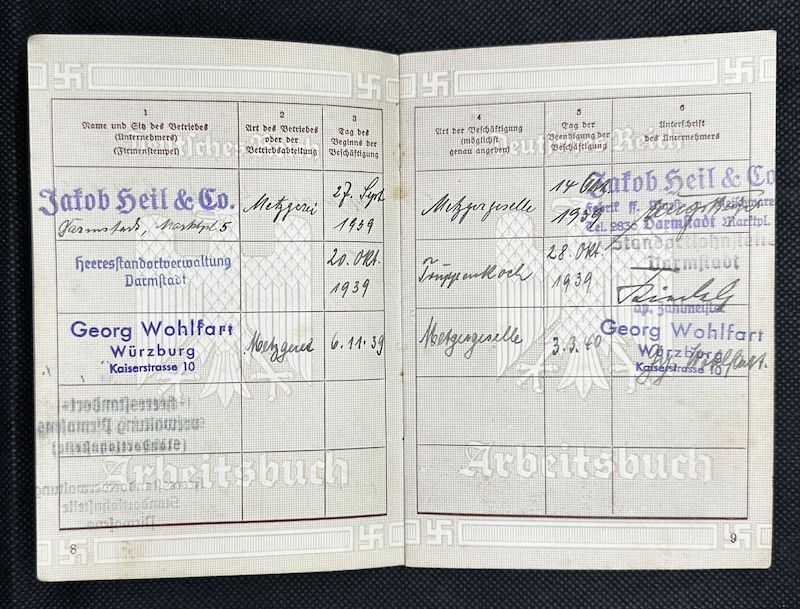 1
Name und Sitz des Betriebes
(Unternehmers)
(Firmenstempel)
2
Art des Betriebes
oder der
Betriebsabteilung
3
Tag des
Beginns der
Beschäftigung
Jakob Heil & Co.
Darmstadt, Marktpl. 5
Metzgerei
27. Sept
1939
Heeresstandortverwaltung
Darmstadt
20. Okt.
1939
Georg Wohlfart
Würzburg
Kaiserstrasse 10
Metzgerei
6.11.39
Heeresstandort-
verwaltung Pirmasens
(Standortlohnstelle)
Heeresstandortverwaltung
Standortlohnstelle
Pirmasens
Deutsches Reich
Arbeitsbuch
8
4
Art der Beschäftigung
(möglichst
genau angeben)
5
Tag der
Beendigung der
Beschäftigung
6
Unterschrift
des Unternehmers
Metzgergeselle
14 Okt.
1939
Jakob Heil & Co.
Tel. 2836 Darmstadt Marktpl.
Truppenkoch
28. Okt
1939
Standortlohnstelle
Darmstadt
ap. Zahlmeister
Metzgergeselle
3.3.40
Georg Wohlfart
Würzburg
Kaiserstrasse 10
Gg. Wohlfart.
Deutsches Reich
Arbeitsbuch
9